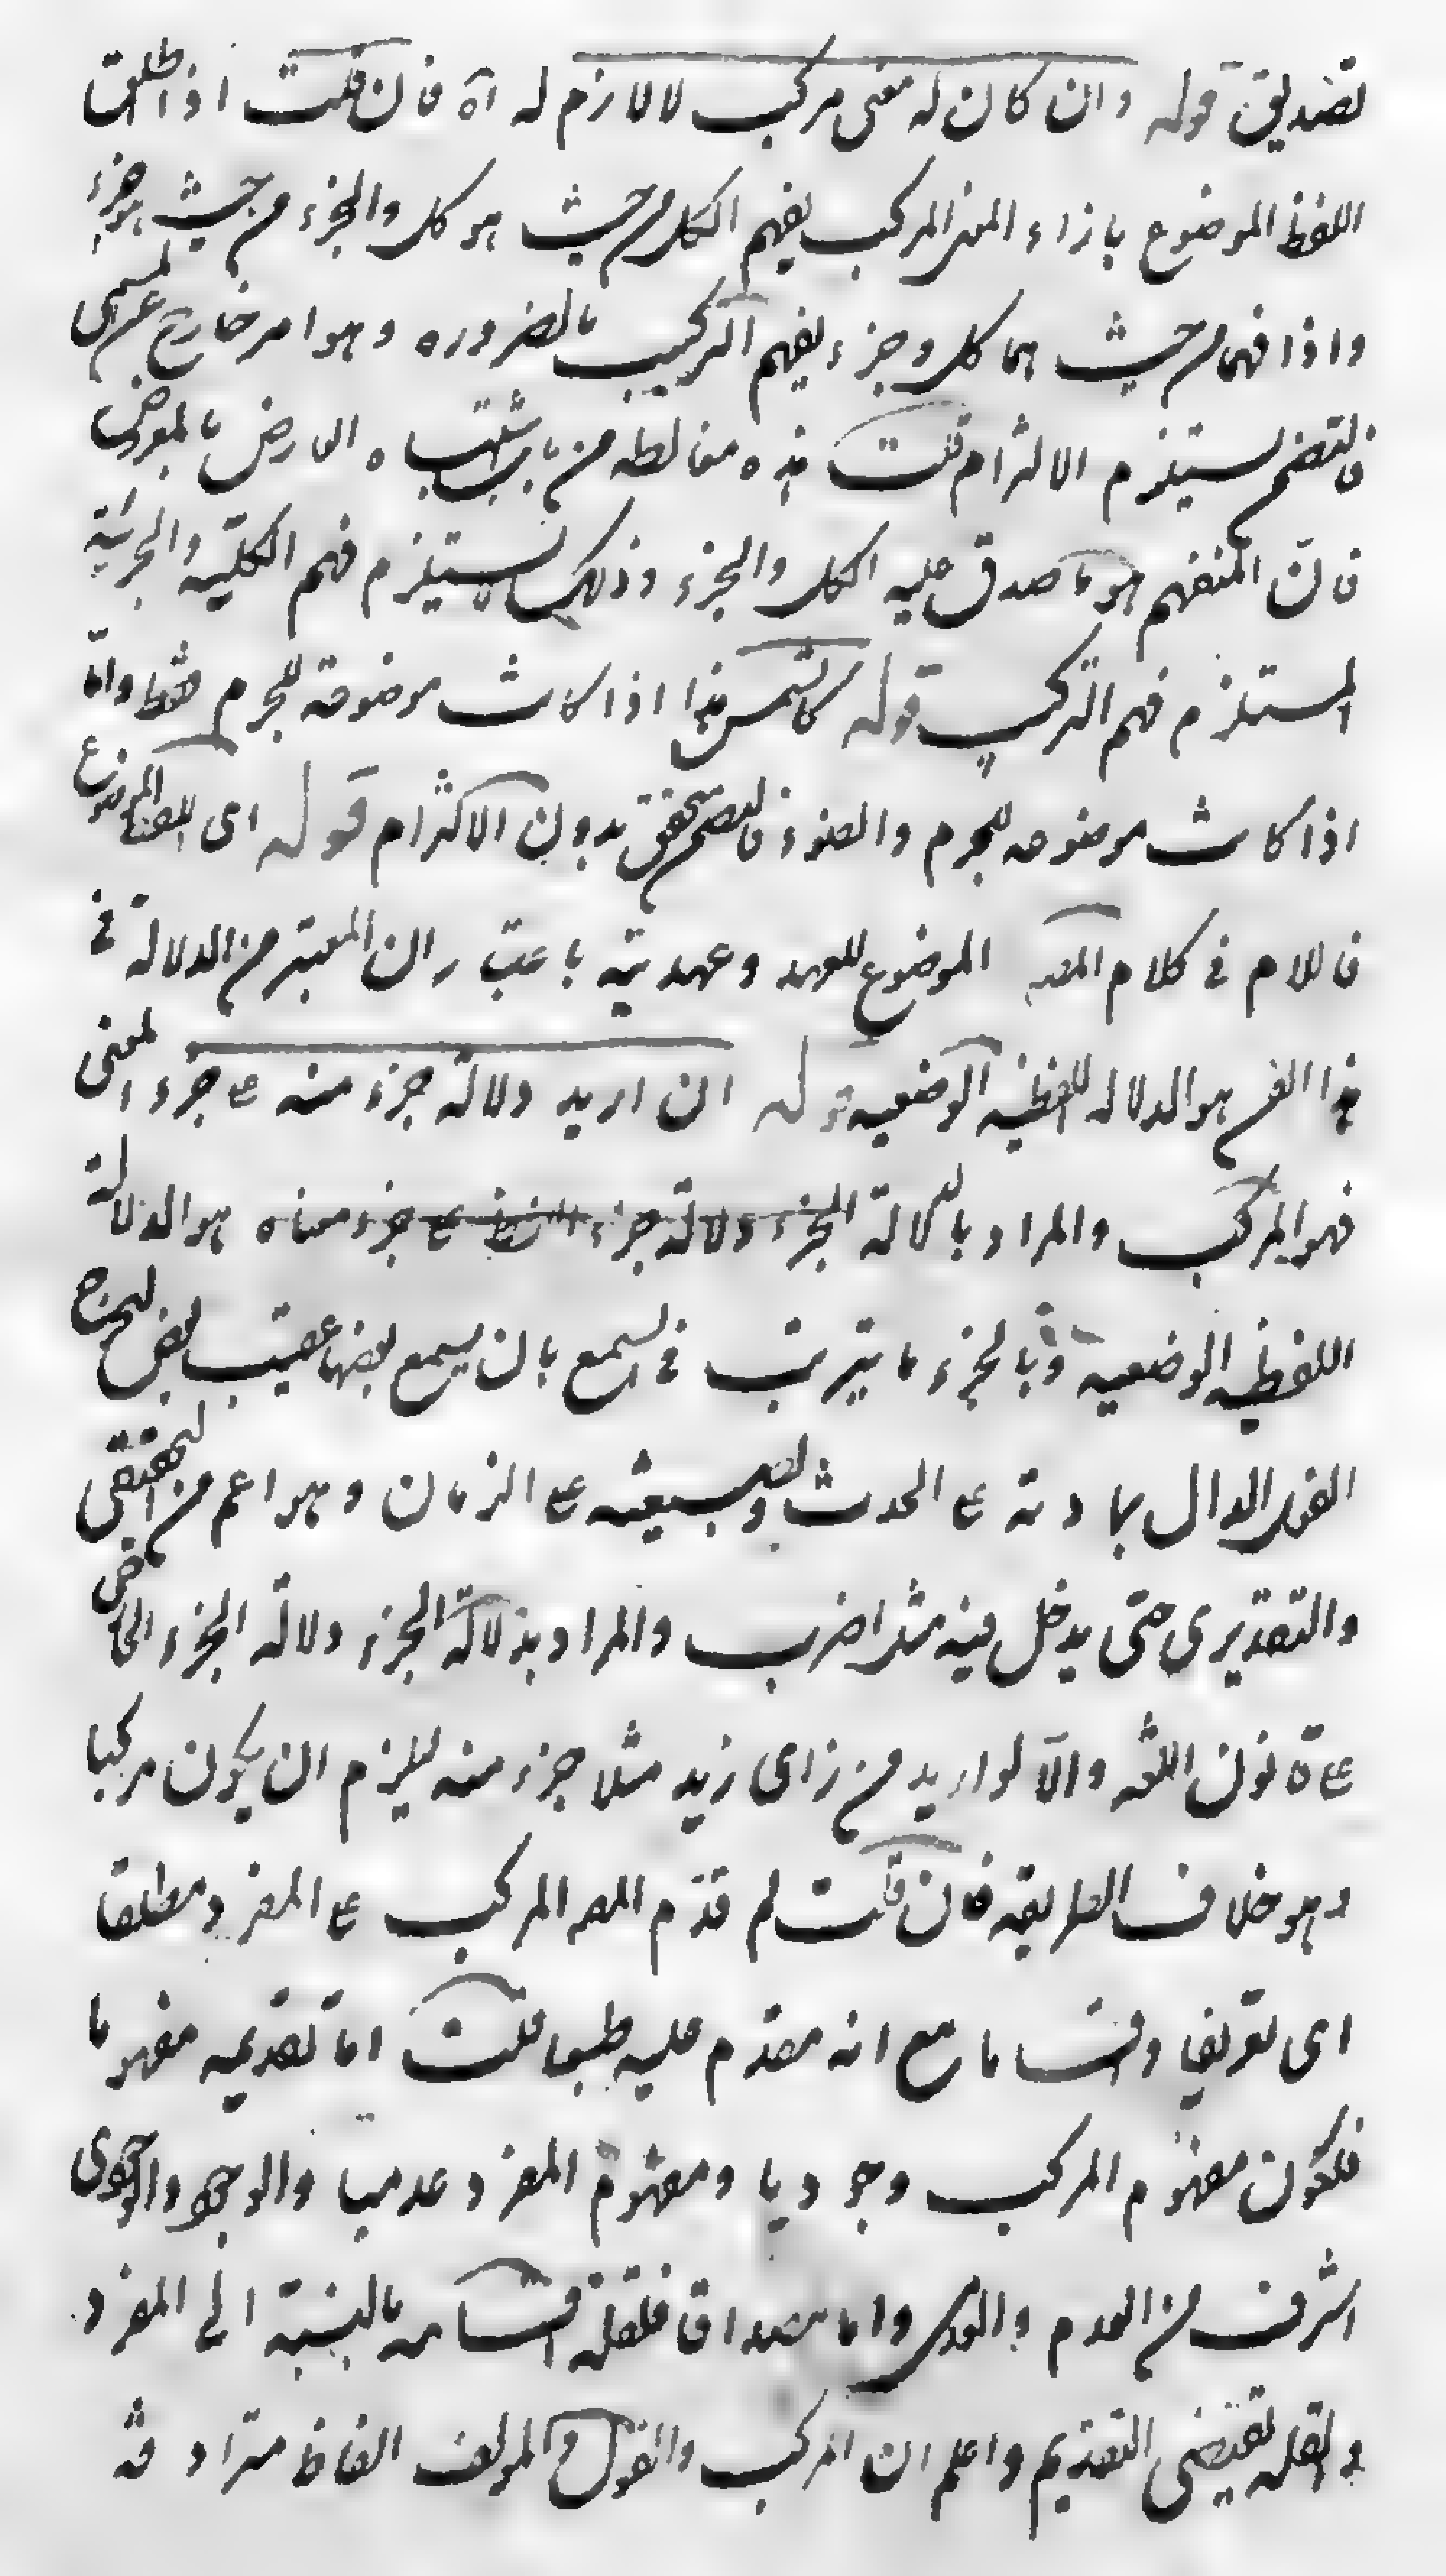 تصديق قوله وان كان له معنى مركب لا لازم له آه فان قلت اذا اطلق
اللفظ الموضوع بازاء المعنى المركب يفهم الكل من حيث هو كل والجزء من حيث هو جزء
واذا فهما من حيث هما كل وجزء يفهم التركيب بالضروره وهو امر خارج عن المسمى
فالتضمن يستلزم الالتزام قلت هذه مغالطه من باب اشتباه العارض بالمعروض
فان المنفهم هو ما صدق عليه الكل والجزء وذلك لا يستلزم فهم الكليه والجزئية
المستلزم فهم التركيب قوله كالشمس هذا اذا كانت موضوعة للجرم فقط واما
اذا كانت موضوعه للجرم والضوء فالتضمن متحقق بدون الالتزام قوله اى اللفظ الموضوع
فاللام فى كلام المص الموضوع للعهد وعهديته باعتبار ان المعتبر من الدلالة فى
هذا الفن هو الدلاله اللفظيه الوضعيه قوله ان اريد دلالة جزء منه ع جزء المعنى
فهو المركب والمراد بالدلالة الجزء دلالة جزء اللفظ ع جزء معناه هو الدلالة
اللفظيه الوضعيه وبالجزء ما يترتب فى السمع بان يسمع بعضها عقيب بعض ليخرج
الفعل الدال بمادته ع الحدث وبصيغته ع الزمان وهو اعم من التحقيقى
والتقديرى حتى يدخل فيه مثل اضرب والمراد بدلالة الجزء دلالة الجزء الجارى
ع قانون اللغه والا لو اريد من زاى زيد مثلا جزء منه ليلزم ان يكون مركبا
وهو خلاف الطريقه فان قلت لم قدم المص المركب ع المفرد مطلقا
اى تعريفا واقساما مع انه مقدم عليه طبعا قلت اما تقديمه مفهوما
فلكون مفهوم المركب وجوديا ومفهوم المفرد عدميا والوجود والوجودى
اشرف من العدم والعدمى واما مصداقا فلقلة اقسامه بالنسبة الى المفرد
والقله يقتضى التقديم واعلم ان المركب والقول والمولف الفاظ مترادفة